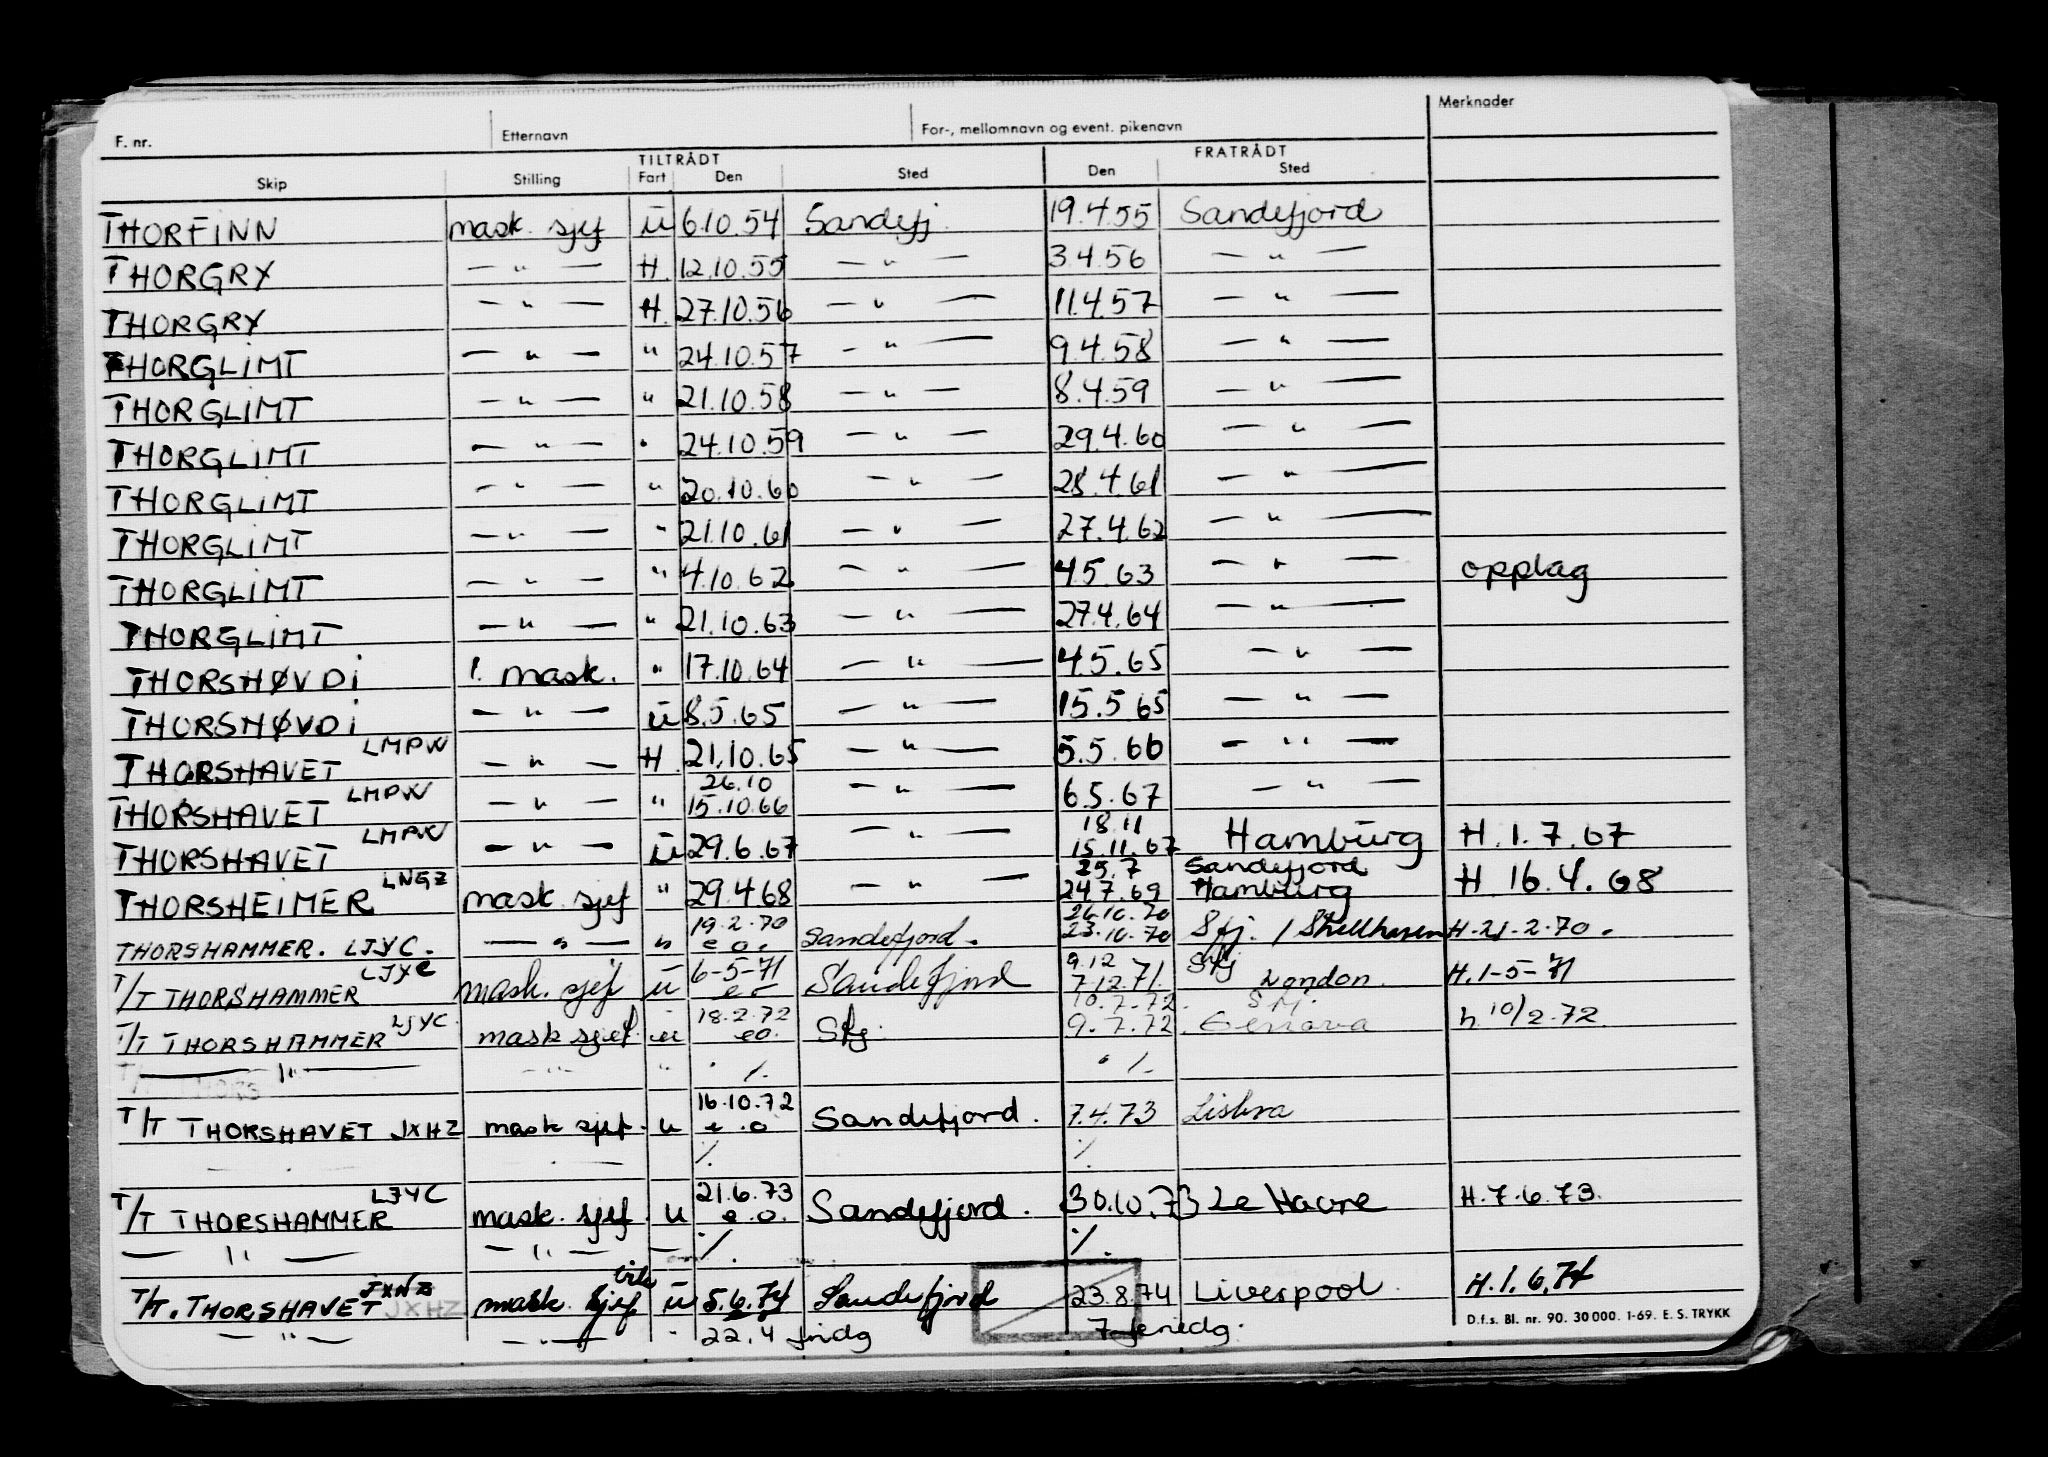 F. nr. Etternavn For-, mellomnavn og event. pikenavn Merknader
TILTRÅDT FRATRÅDT
Skip Stilling Fart Den Sted Den Sted
THORFINN mask. sjef ū 6.10.54 Sandefj. 19.4.55 Sandefjord
THORGRY — " — H. 12.10.55 — " — 3.4.56 — " —
THORGRY — " — H. 27.10.56 — " — 11.4.57 — " —
THORGLIMT — " — " 24.10.57 — " — 9.4.58 — " —
THORGLIMT — " — " 21.10.58 — " — 8.4.59 — " —
THORGLIMT — " — " 24.10.59 — " — 29.4.60 — " —
THORGLIMT — " — " 20.10.60 — " — 28.4.61 — " —
THORGLIMT — " — " 21.10.61 — " — 27.4.62 — " —
THORGLIMT — " — " 4.10.62 — " — 4.5.63 — " — opplag
THORGLIMT — " — " 21.10.63 — " — 27.4.64 — " —
THORSHØVDI 1. mask. " 17.10.64 — " — 4.5.65 — " —
THORSHØVDI — " — ū 8.5.65 — " — 15.5.65 — " —
THORSHAVET LMPW — " — H. 21.10.65 — " — 5.5.66 — " —
26.10
THORSHAVET LMPW — " — " 15.10.66 — " — 6.5.67 — " —
18.11
THORSHAVET LMPW — " — ū 29.6.67 — " — 15.11.67 Hamburg H. 1.7.67
25.7 Sandefjord
THORSHEIMER LNGZ mask. sjef " 29.4.68 — " — 24.7.69 Hamburg H 16.4.68
19.2.70 26.10.70
THORSHAMMER. LJYC. — " — " e.o. Sandefjord. 23.10.70 Sfj. / Shellhaven H. 21.2.70.
LJYC 6-5-71 9.12 Sfj
T/T THORSHAMMER mask. sjef ū e.o Sandefjord 7.12.71. London. H. 1-5-71
18.2.72 10.7.72. Sfj.
T/T THORSHAMMER LJYC mask sjef. ū e.o. Sfj. 9.7.72 Genova h 10/2.72.
— " — — " — " ./. ./.
16.10.72
T/T THORSHAVET JXHZ mask sjef. u e.o Sandefjord. 7.4.73 Lisboa
— " — — " — ./. ./.
LJYC 21.6.73
T/T THORSHAMMER mask. sjef. u e.o. Sandefjord. 30.10.73 Le Havre H.7.6.73.
— " — — " — — ./. ./.
T/T. THORSHAVET JXHZ JXHZ mask. sjef ū 5.6.74 Sandefjord 23.8.74 Liverpool. H.1.6.74
— " — — " — " 22.4 7
D.f.s. Bl. nr. 90. 30 000. 1-69. E. S. TRYKK